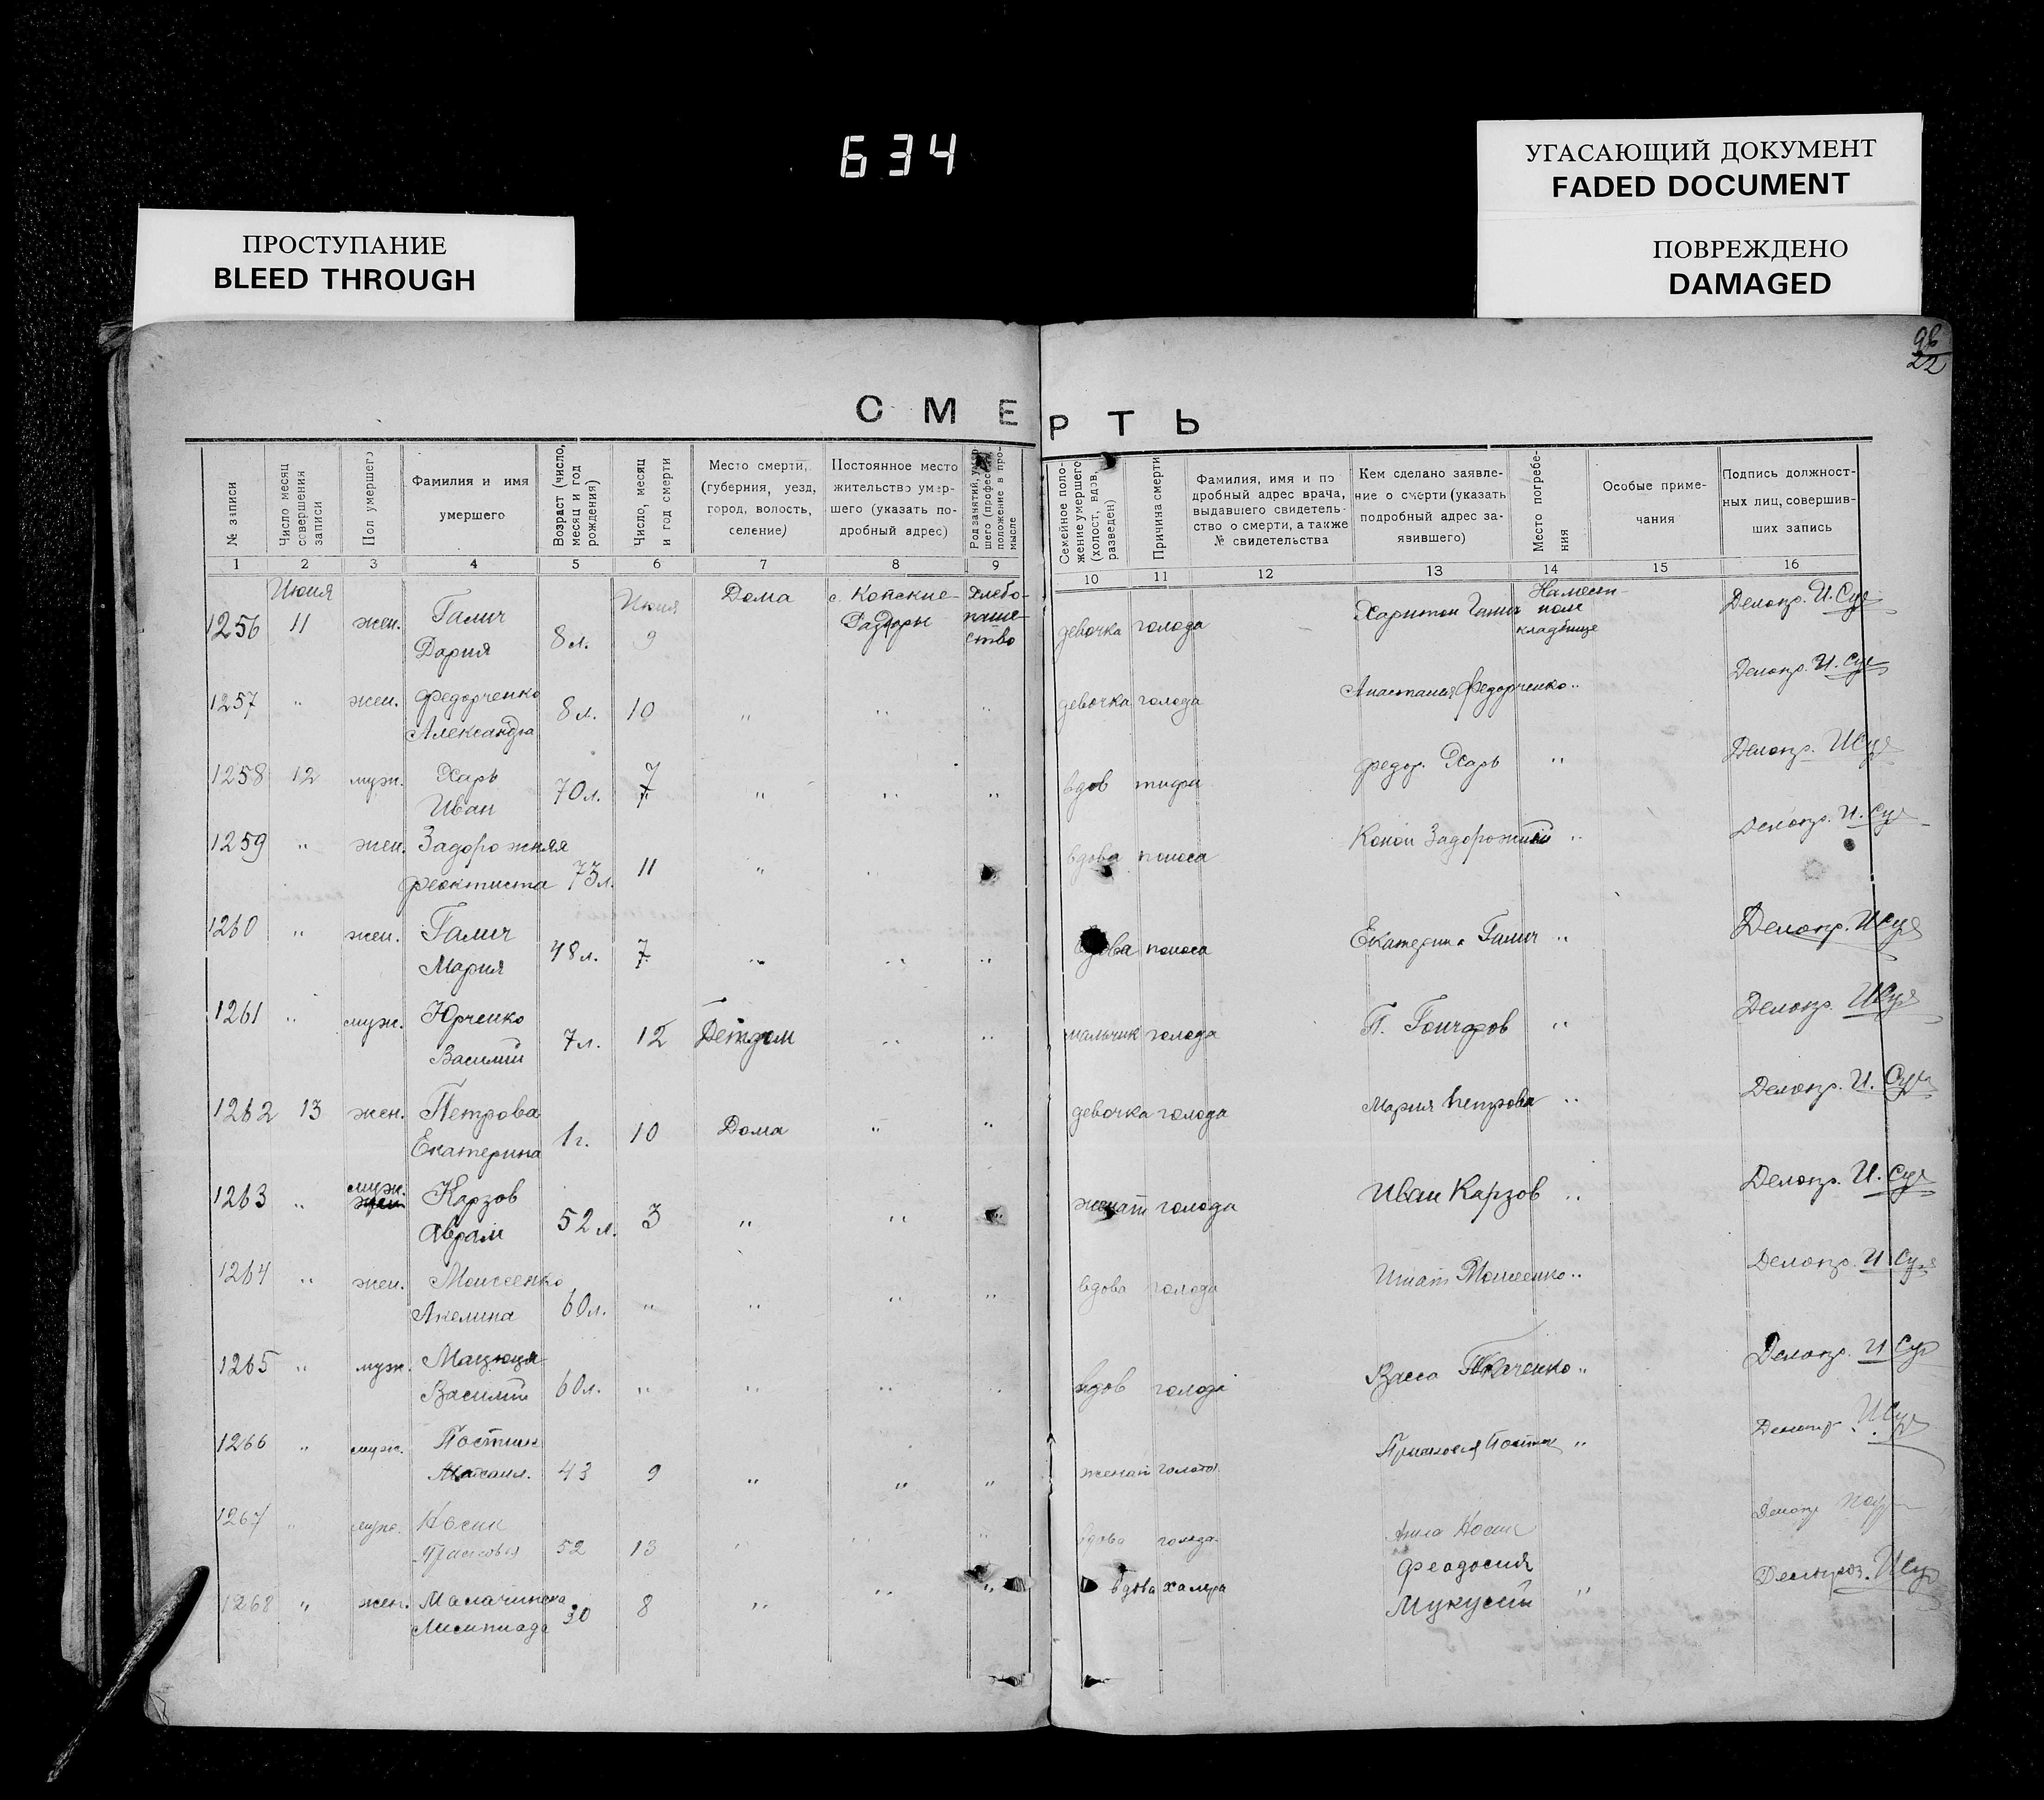 634
УГАСАЮЩИЙ ДОКУМЕНТ
FADED DOCUMENT
ПОВРЕЖДЕНО
DAMAGED
ПРОСТУПАНИЕ
BLEED THROUGH
98
22
СМЕРТЬ
№ записи
Число месяц совершения записи
Пол умершего
Фамилия и имя умершего
Возраст (число, месяц и год рождения)
Число, месяц и год смерти
Место смерти, (губерния, уезд, город, волость, селение)
Постоянное место жительство умершего (указать подробный адрес)
Род занятий, умершего (профессия) положение в промысле
Семейное положение умершего (холост, вдов, разведен)
Причина смерти
Фамилия, имя и подробный адрес врача, выдавшего свидетельство о смерти, а также № свидетельства
Кем сделано заявление о смерти (указать подробный адрес заявившего)
Место погребения
Особые примечания
Подпись должностных лиц, совершивших запись
1 2 3 4 5 6 7 8 9 10 11 12 13 14 15 16
1256 Июня 11 жен. Галич Дария 8 л. Июня 9 Дома с. Копские Раздоры Хлебопашество девочка голода Харитон Галич На местном кладбище Делопр. И. Суя
1257 " жен. Федорченко Александра 8 л. 10 " " " девочка голода Анастасия Федорченко " Делопр. И. Суя
1258 12 муж. Харь Иван 70 л. 7 " " " вдов тифа Федор Харь " Делопр. И Суя
1259 " жен. Задорожняя Феоктиста 73 л. 11 " " вдова поноса Конон Задорожний " Делопр. И. Суя
1260 " жен. Галич Мария 48 л. 7 " " " вдова поноса Екатерина Галич " Делопр. И Суя
1261 " муж. Юрченко Василий 7 л. 12 Детдом " " мальчик голода П. Гончаров " Делопр. И Суя
1262 13 жен. Петрова Екатерина 1 г. 10 Дома " " девочка голода Мария Петрова " Делопр. И. Суя
1263 " муж. Карзов Аврам 52 л. 3 " " " женат голода Иван Карзов " Делопр. И. Суя
1264 " жен. Моисеенко Акелина 60 л. " " " " вдова голода Игнат Моисеенко " Делопр. И Суя
1265 " муж. Мацюця Василий 60 л. " " " " вдов голода Васса Ткаченко " Делопр. И Суя
1266 " муж. Постик 43 9 " " " женат голода " Делопр. И Суя
1267 " муж. Носик 52 13 " " " вдова голода Носик Делопр
1268 " жен. 30 8 " " " вдова халера Феодосия Мукусий " И Суя